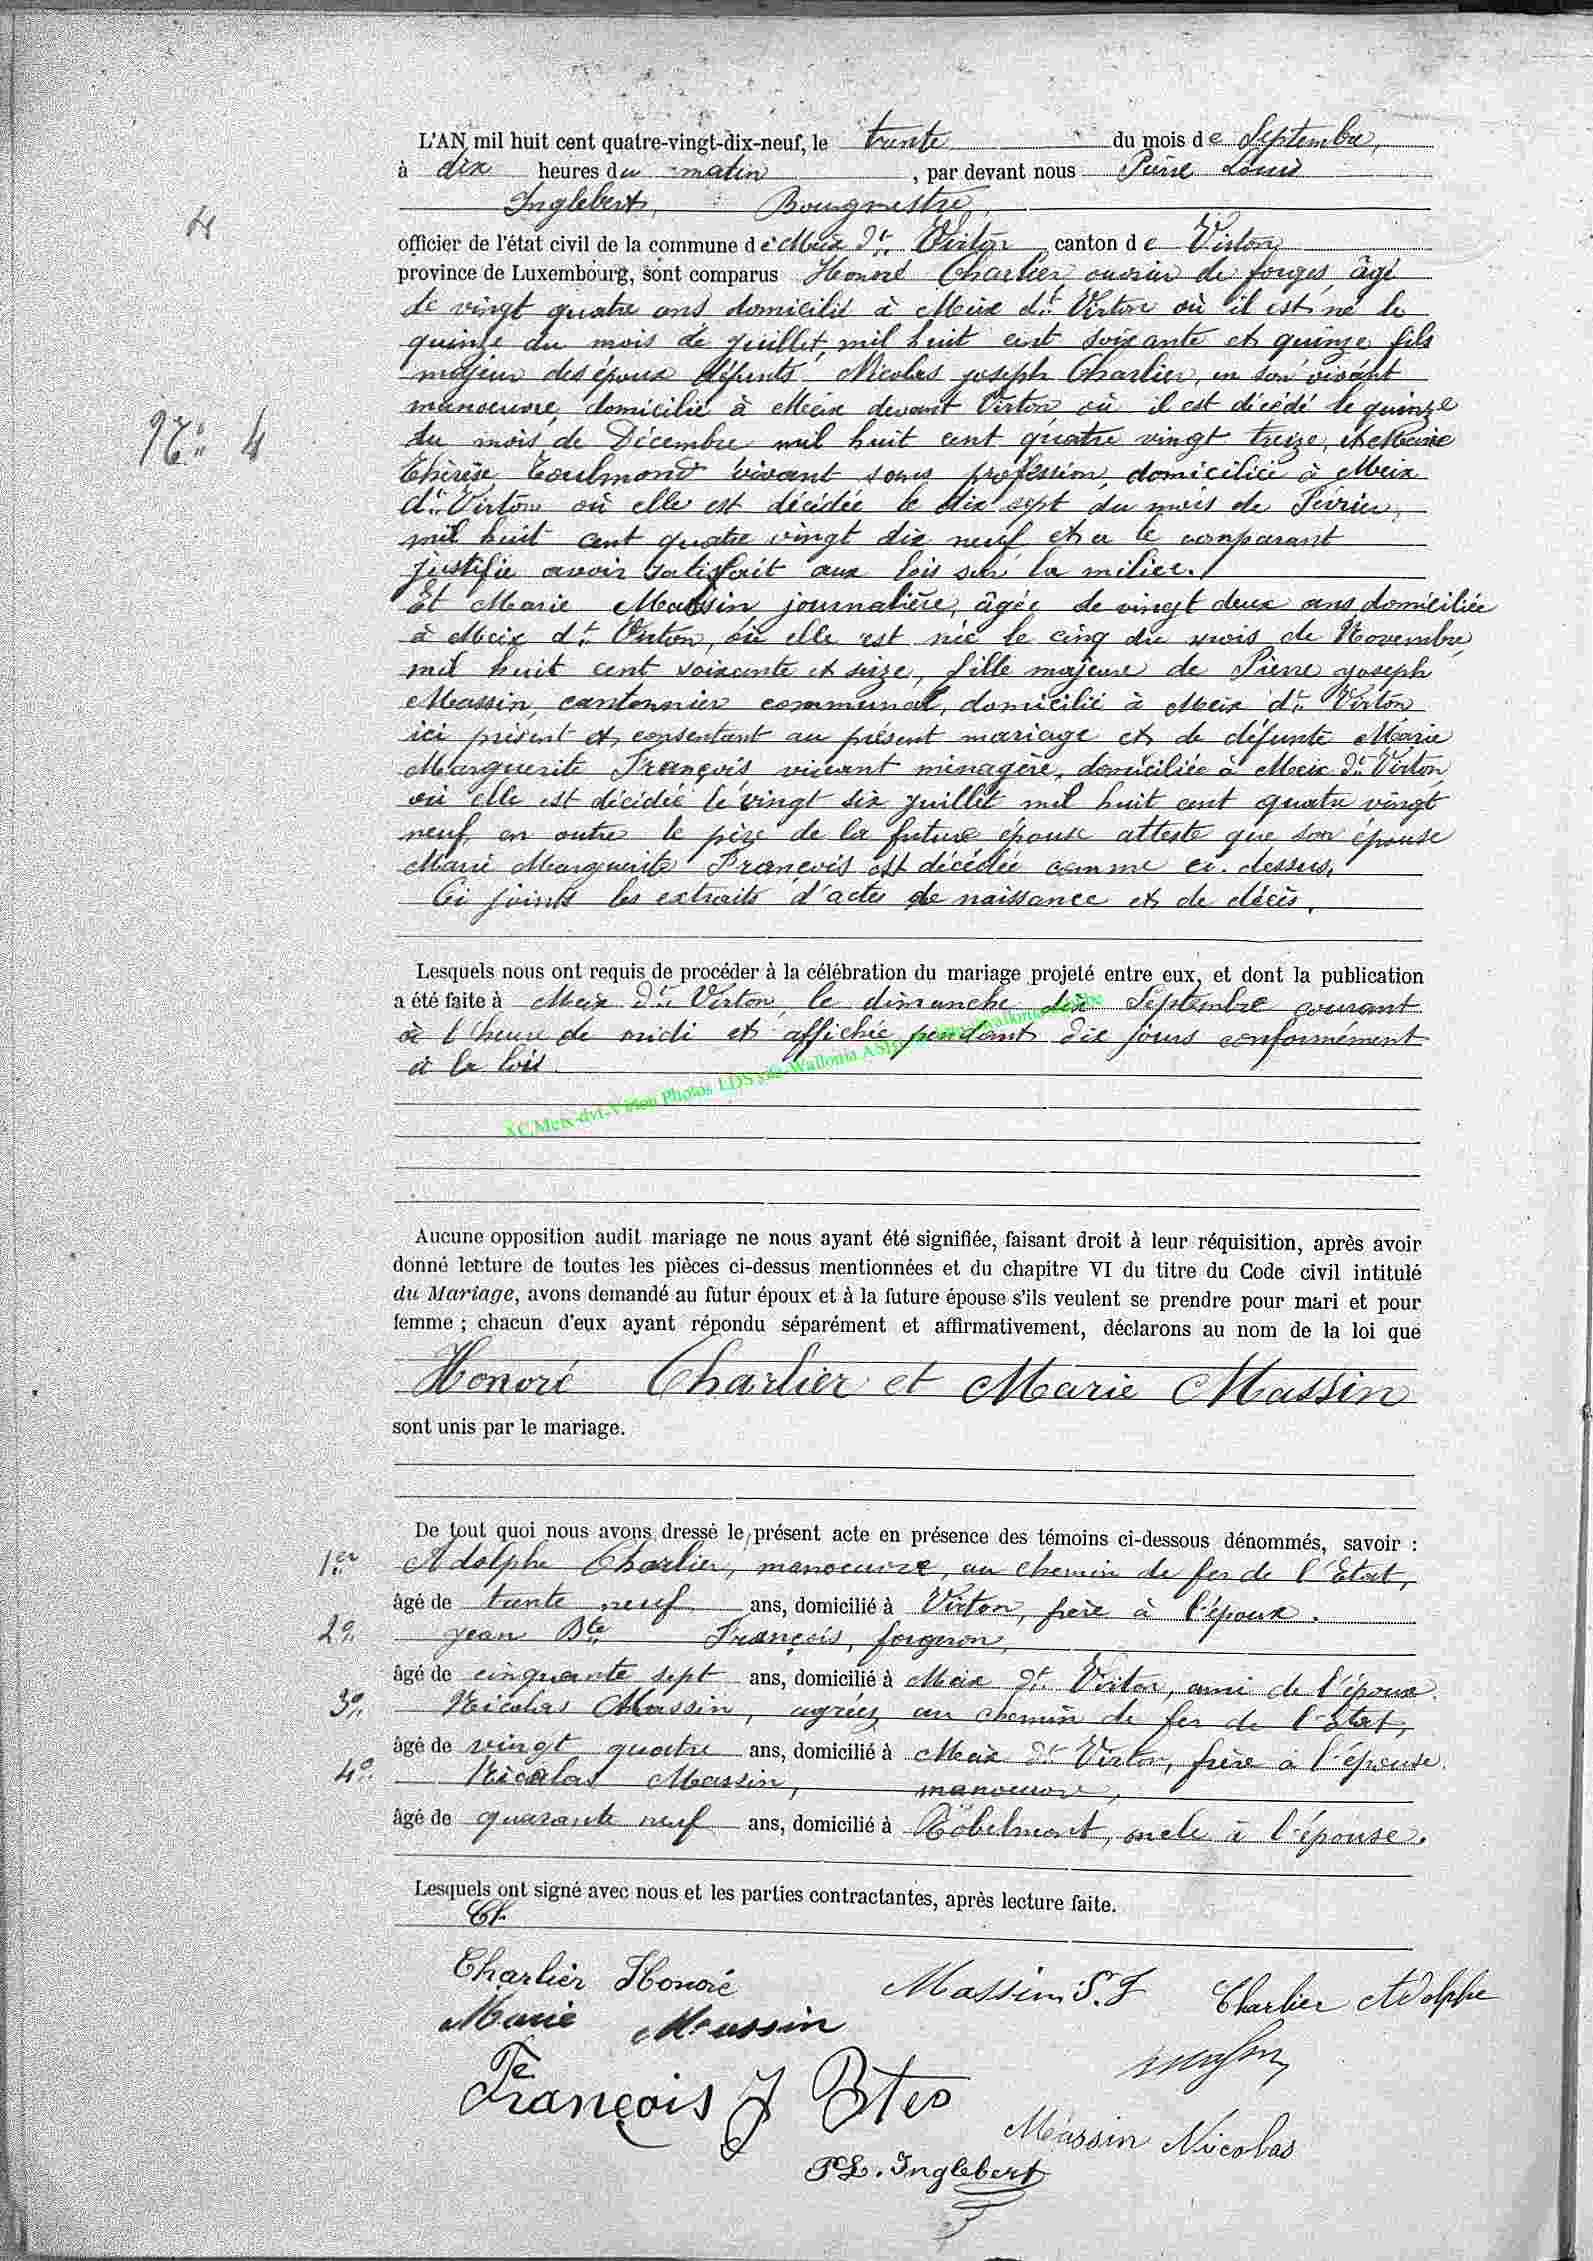 L'AN mil huit cent quatre-vingt-dix-neuf, le trente du mois de Septembre,
à dix heures du matin, par devant nous Pierre Louis
Inglebert, Bourgmestre,
4
officier de l'état civil de la commune de Meix dt Virton canton de Virton
province de Luxembourg, sont comparus Honoré Charlier, ouvrier de forges, âgé
de vingt quatre ans domicilié à Meix dt Virton où il est né le
quinze du mois de juillet, mil huit cent soixante et quinze fils
majeur des époux défunts Nicolas joseph Charlier, en son vivant
manoeuvre, domicilié à Meix devant Virton où il est décédé le quinze
No 4
du mois de Décembre mil huit cent quatre vingt treize, et Marie
Thérèse Toulmond vivant sans profession, domiciliée à Meix
dt Virton où elle est décédée le dix sept du mois de Février,
mil huit cent quatre vingt dix neuf et a le comparant
justifié avoir satisfait aux lois sur la milice.
Et Marie Massin journalière, âgée de vingt deux ans, domiciliée
à Meix dt Virton, où elle est née le cinq du mois de Novembre
mil huit cent soixante et seize, fille majeure de Pierre joseph
Massin, cantonnier communal, domicilié à Meix dt Virton
ici présent et consentant au présent mariage et de défunte Marie
Marguerite François vivant ménagère, domiciliée à Meix dt Virton
où elle est décédée le vingt six juillet mil huit cent quatre vingt
neuf, en outre le père de la future épouse atteste que son épouse
Marie Marguerite François est décédée comme ci-dessus.
Ci joints les extraits d'actes de naissance et de décès.
Lesquels nous ont requis de procéder à la célébration du mariage projeté entre eux, et dont la publication
a été faite à Meix dt Virton, le dimanche dix Septembre courant
à l'heure de midi et affichée pendant dix jours conformément
à la loi.
XC Meix-dvt-Virton Photos LDS via Wallonia ASBL
Aucune opposition audit mariage ne nous ayant été signifiée, faisant droit à leur réquisition, après avoir
donné lecture de toutes les pièces ci-dessus mentionnées et du chapitre VI du titre du Code civil intitulé
du Mariage, avons demandé au futur époux et à la future épouse s'ils veulent se prendre pour mari et pour
femme ; chacun d'eux ayant répondu séparément et affirmativement, déclarons au nom de la loi que
Honoré Charlier et Marie Massin
sont unis par le mariage.
De tout quoi nous avons dressé le présent acte en présence des témoins ci-dessous dénommés, savoir :
1er Adolphe Charlier, manoeuvre, au chemin de fer de l'Etat,
âgé de trente neuf ans, domicilié à Virton, frère à l'époux.
2o jean Bte François, forgeron,
âgé de cinquante sept ans, domicilié à Meix dt Virton, ami de l'époux.
3o Nicolas Massin, agréez au chemin de fer de l'Etat,
âgé de vingt quatre ans, domicilié à Meix dt Virton, frère à l'épouse.
4o Nicolas Massin, manoeuvre,
âgé de quarante neuf ans, domicilié à Robelmont, oncle à l'épouse.
Lesquels ont signé avec nous et les parties contractantes, après lecture faite.
Charlier Honoré Massin P. J Charlier Adolphe
Marie Massin
François J Btes
Massin Nicolas
PL. Inglebert